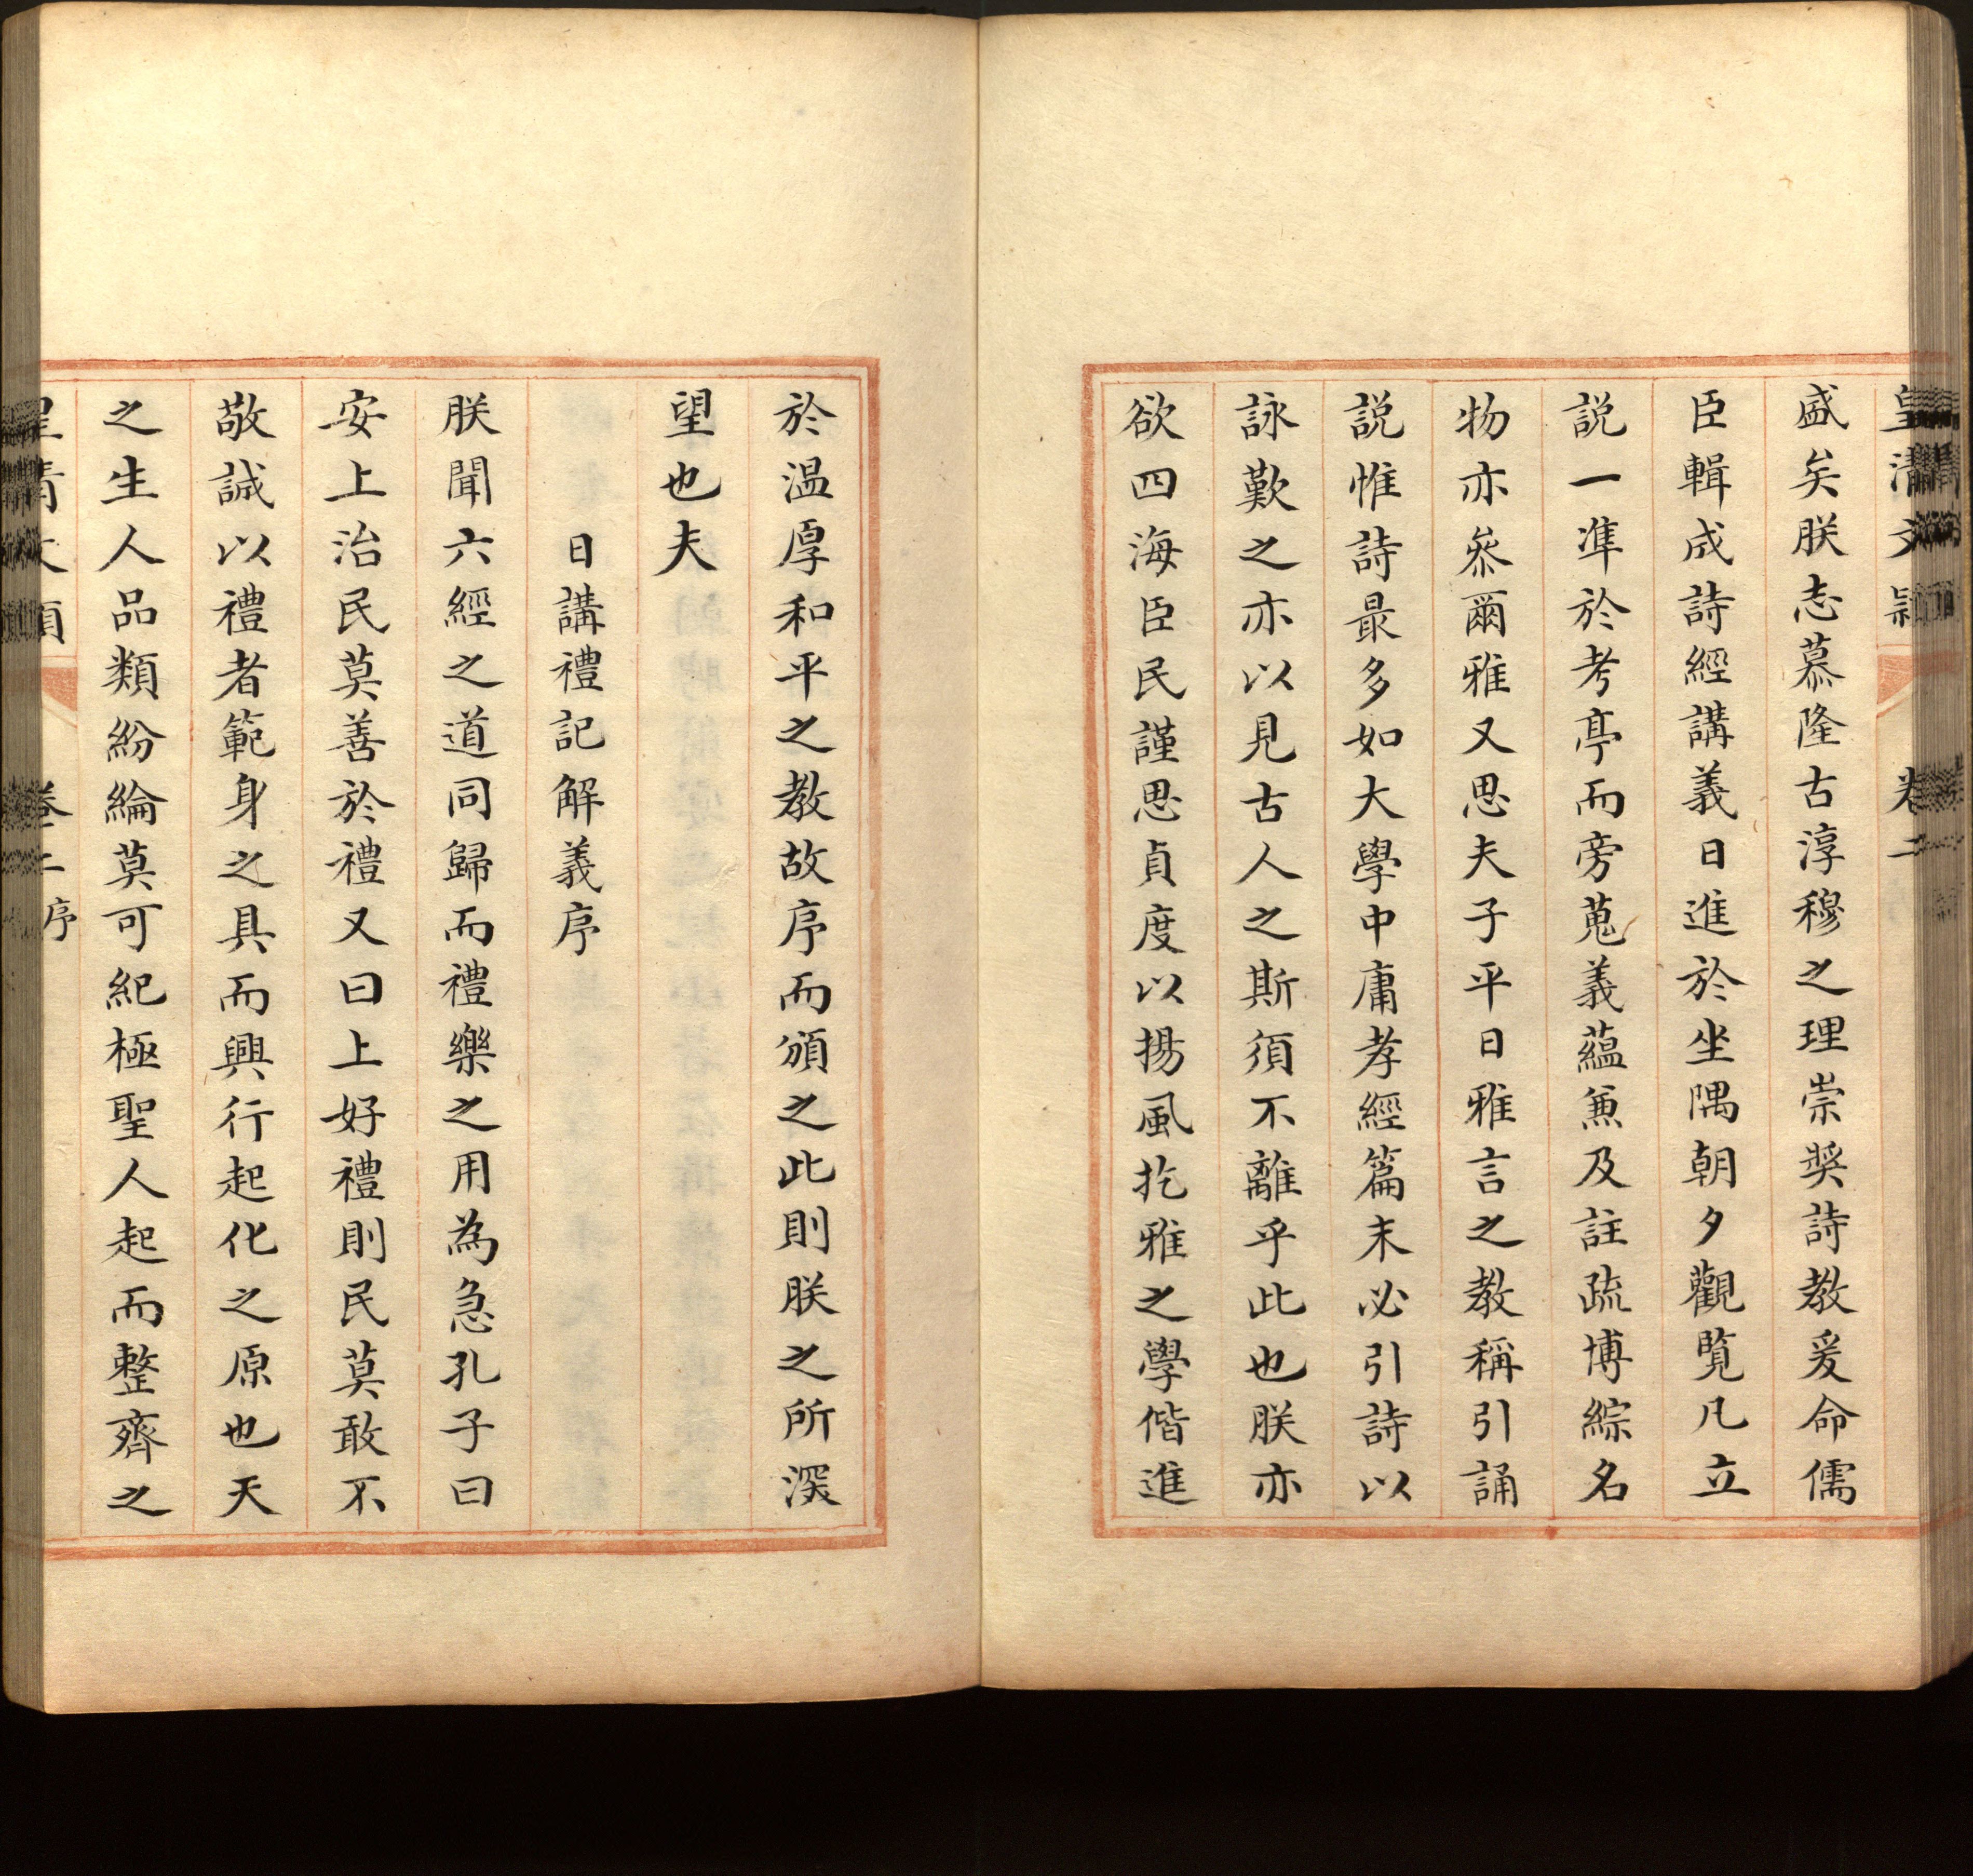 皇清文穎　卷二
盛矣朕志慕隆古淳穆之理崇奬詩教爰命儒
臣輯成詩經講義日進於坐隅朝夕觀覽凡立
説一準於考亭而旁蒐義藴兼及註疏博綜名
物亦叅爾雅又思夫子平日雅言之教稱引誦
説惟詩最多如大學中庸孝經篇末必引詩以
詠歎之亦以見古人之斯須不離乎此也朕亦
欲四海臣民謹思貞度以揚風扢雅之學偕進
於温厚和平之教故序而頒之此則朕之所深
望也夫
日講禮記解義序
朕聞六經之道同歸而禮樂之用為急孔子曰
安上治民莫善於禮又曰上好禮則民莫敢不
敬誠以禮者範身之具而興行起化之原也天
之生人品類紛綸莫可紀極聖人起而整齊之
皇清文穎　卷二序